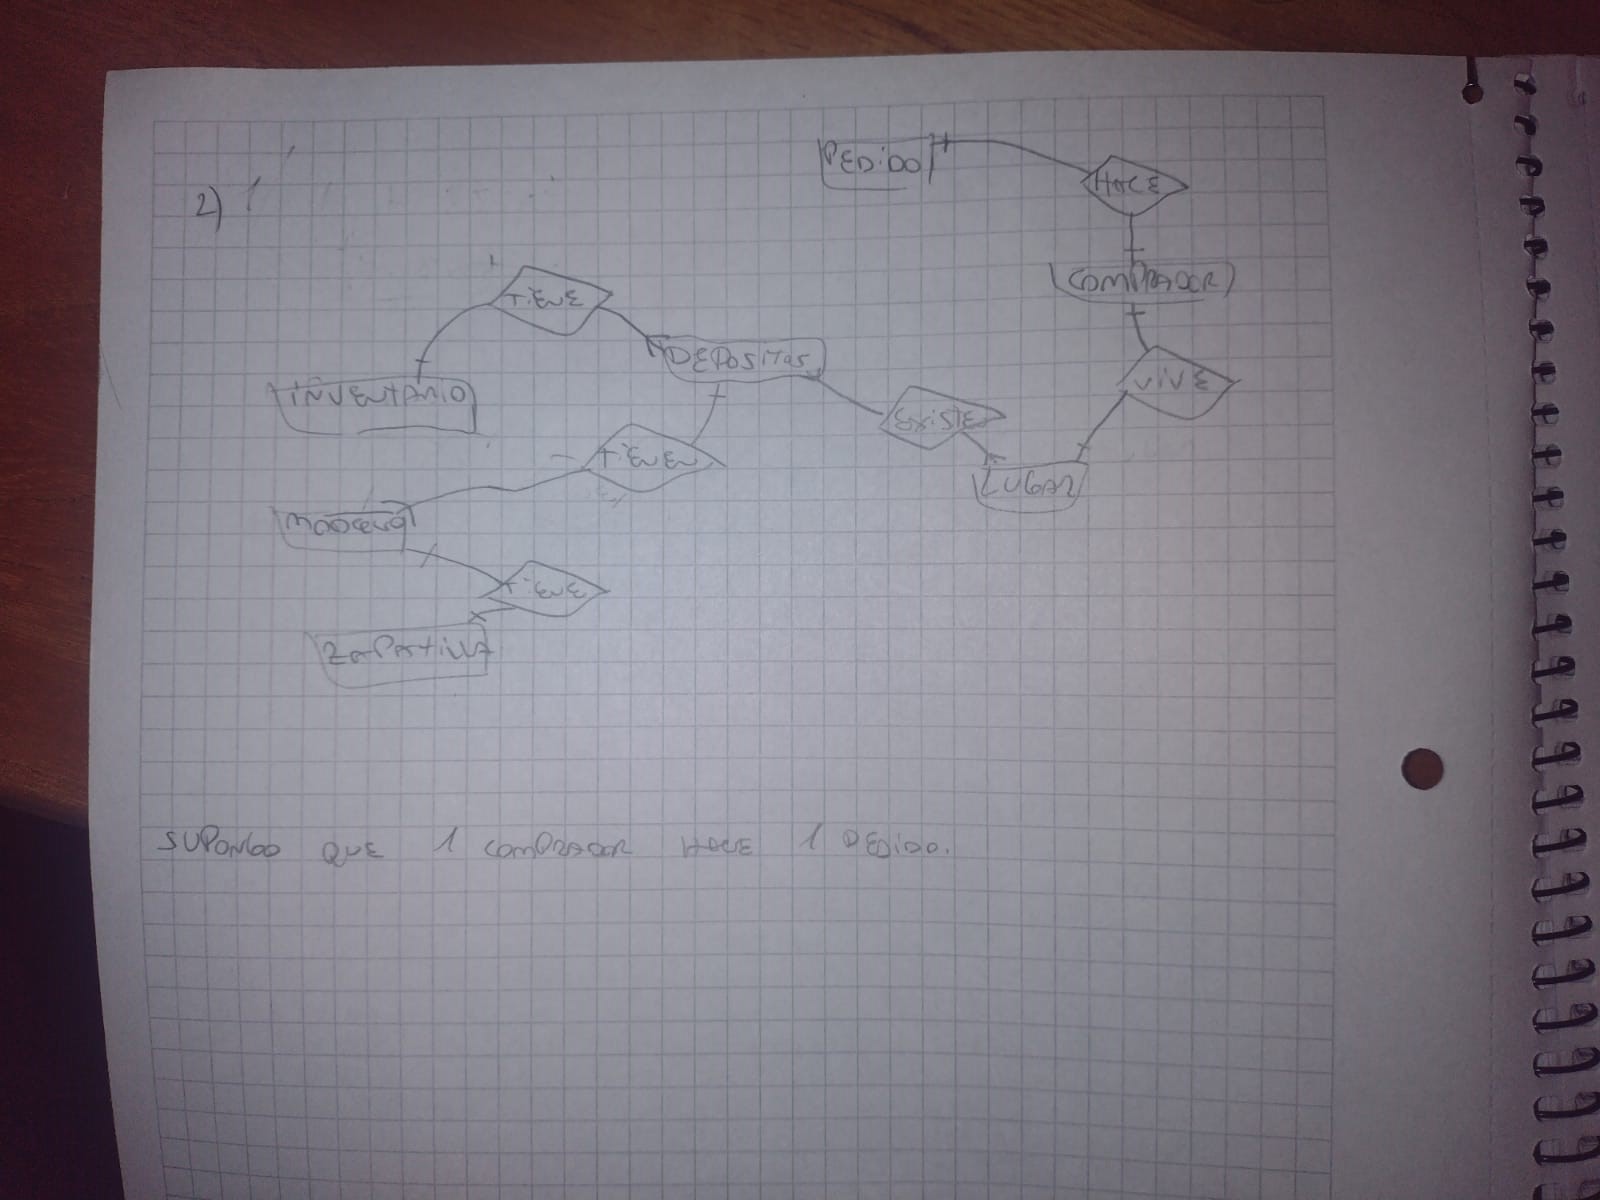 2)
PEDIDO
HACE
COMPRADOR
TIENE
DEPOSITOS
VIVE
INVENTARIO
EXISTE
TIENEN
LUGAR
TIENE
ZAPATILLA
SUPONGO QUE 1 COMPRADOR HACE 1 PEDIDO.